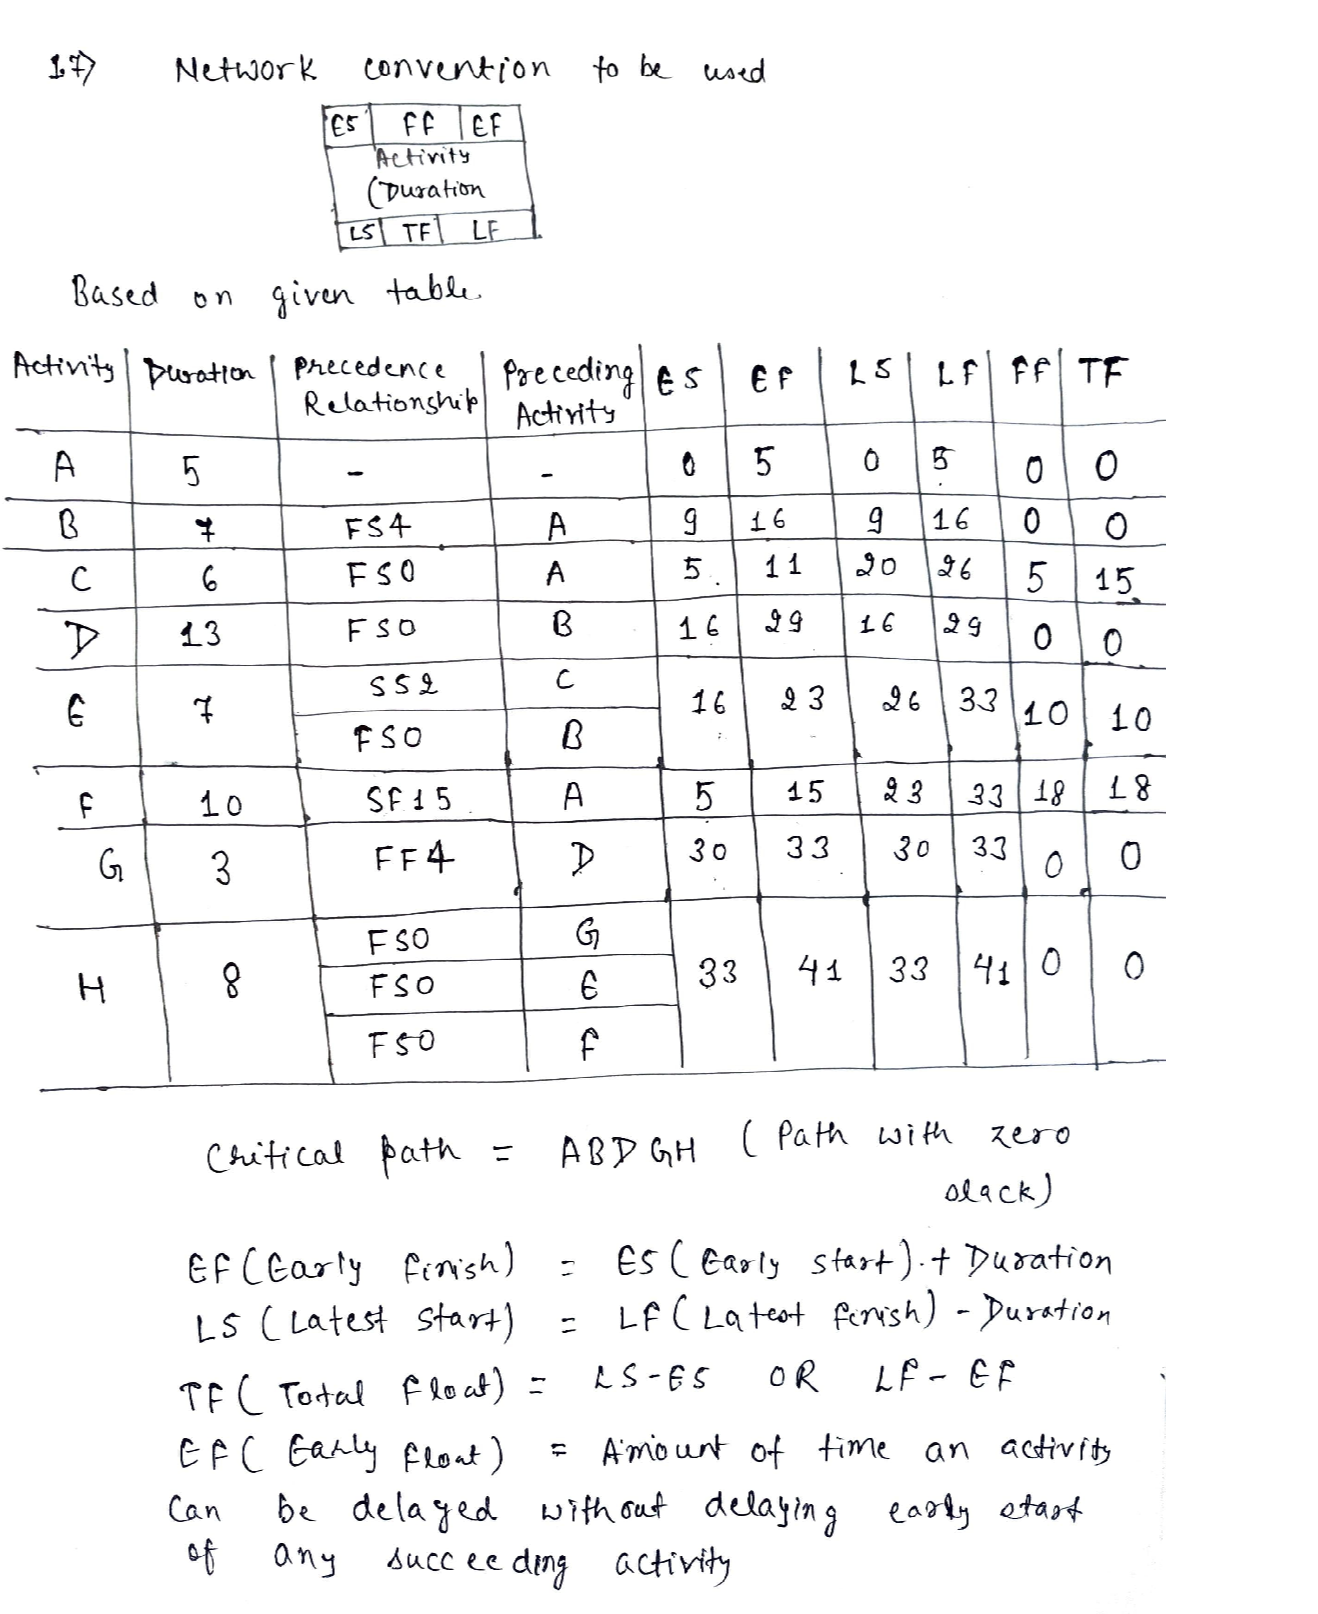 17) Network convention to be used
ES FF EF
Activity
(Duration
LS TF LF
Based on given table
Activity Duration Precedence Relationship Preceding Activity ES EF LS LF FF TF
A 5 - - 0 5 0 5 0 0
B 7 FS4 A 9 16 9 16 0 0
C 6 FSO A 5 11 20 26 5 15
D 13 FSO B 16 29 16 29 0 0
E 7 SS2 C 16 23 26 33 10 10
FSO B
F 10 SF15 A 5 15 23 33 18 18
G 3 FF4 D 30 33 30 33 0 0
H 8 FSO G 33 41 33 41 0 0
FSO E
FSO F
Critical path = ABDGH (Path with zero
slack)
EF (Early finish) = ES (Early start) + Duration
LS (Latest start) = LF (Latest finish) - Duration
TF (Total float) = LS-ES OR LF-EF
EF (Early float) = Amount of time an activity
can be delayed without delaying early start
of any succeeding activity